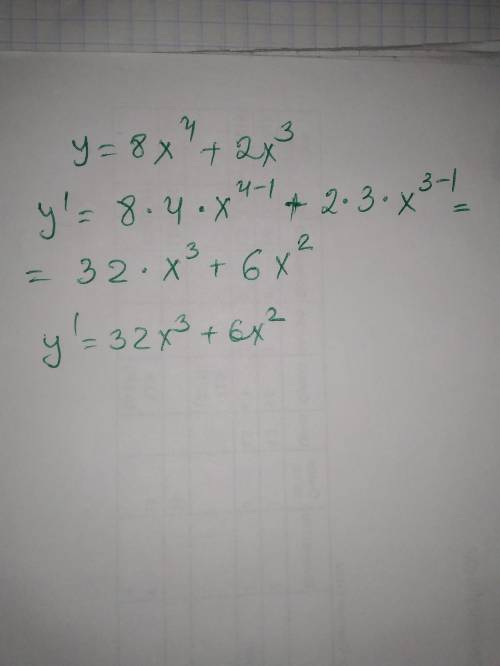 y = 8x⁴ + 2x³
y' = 8 · 4 · x⁴⁻¹ + 2 · 3 · x³⁻¹ =
= 32 · x³ + 6x²
y' = 32x³ + 6x²